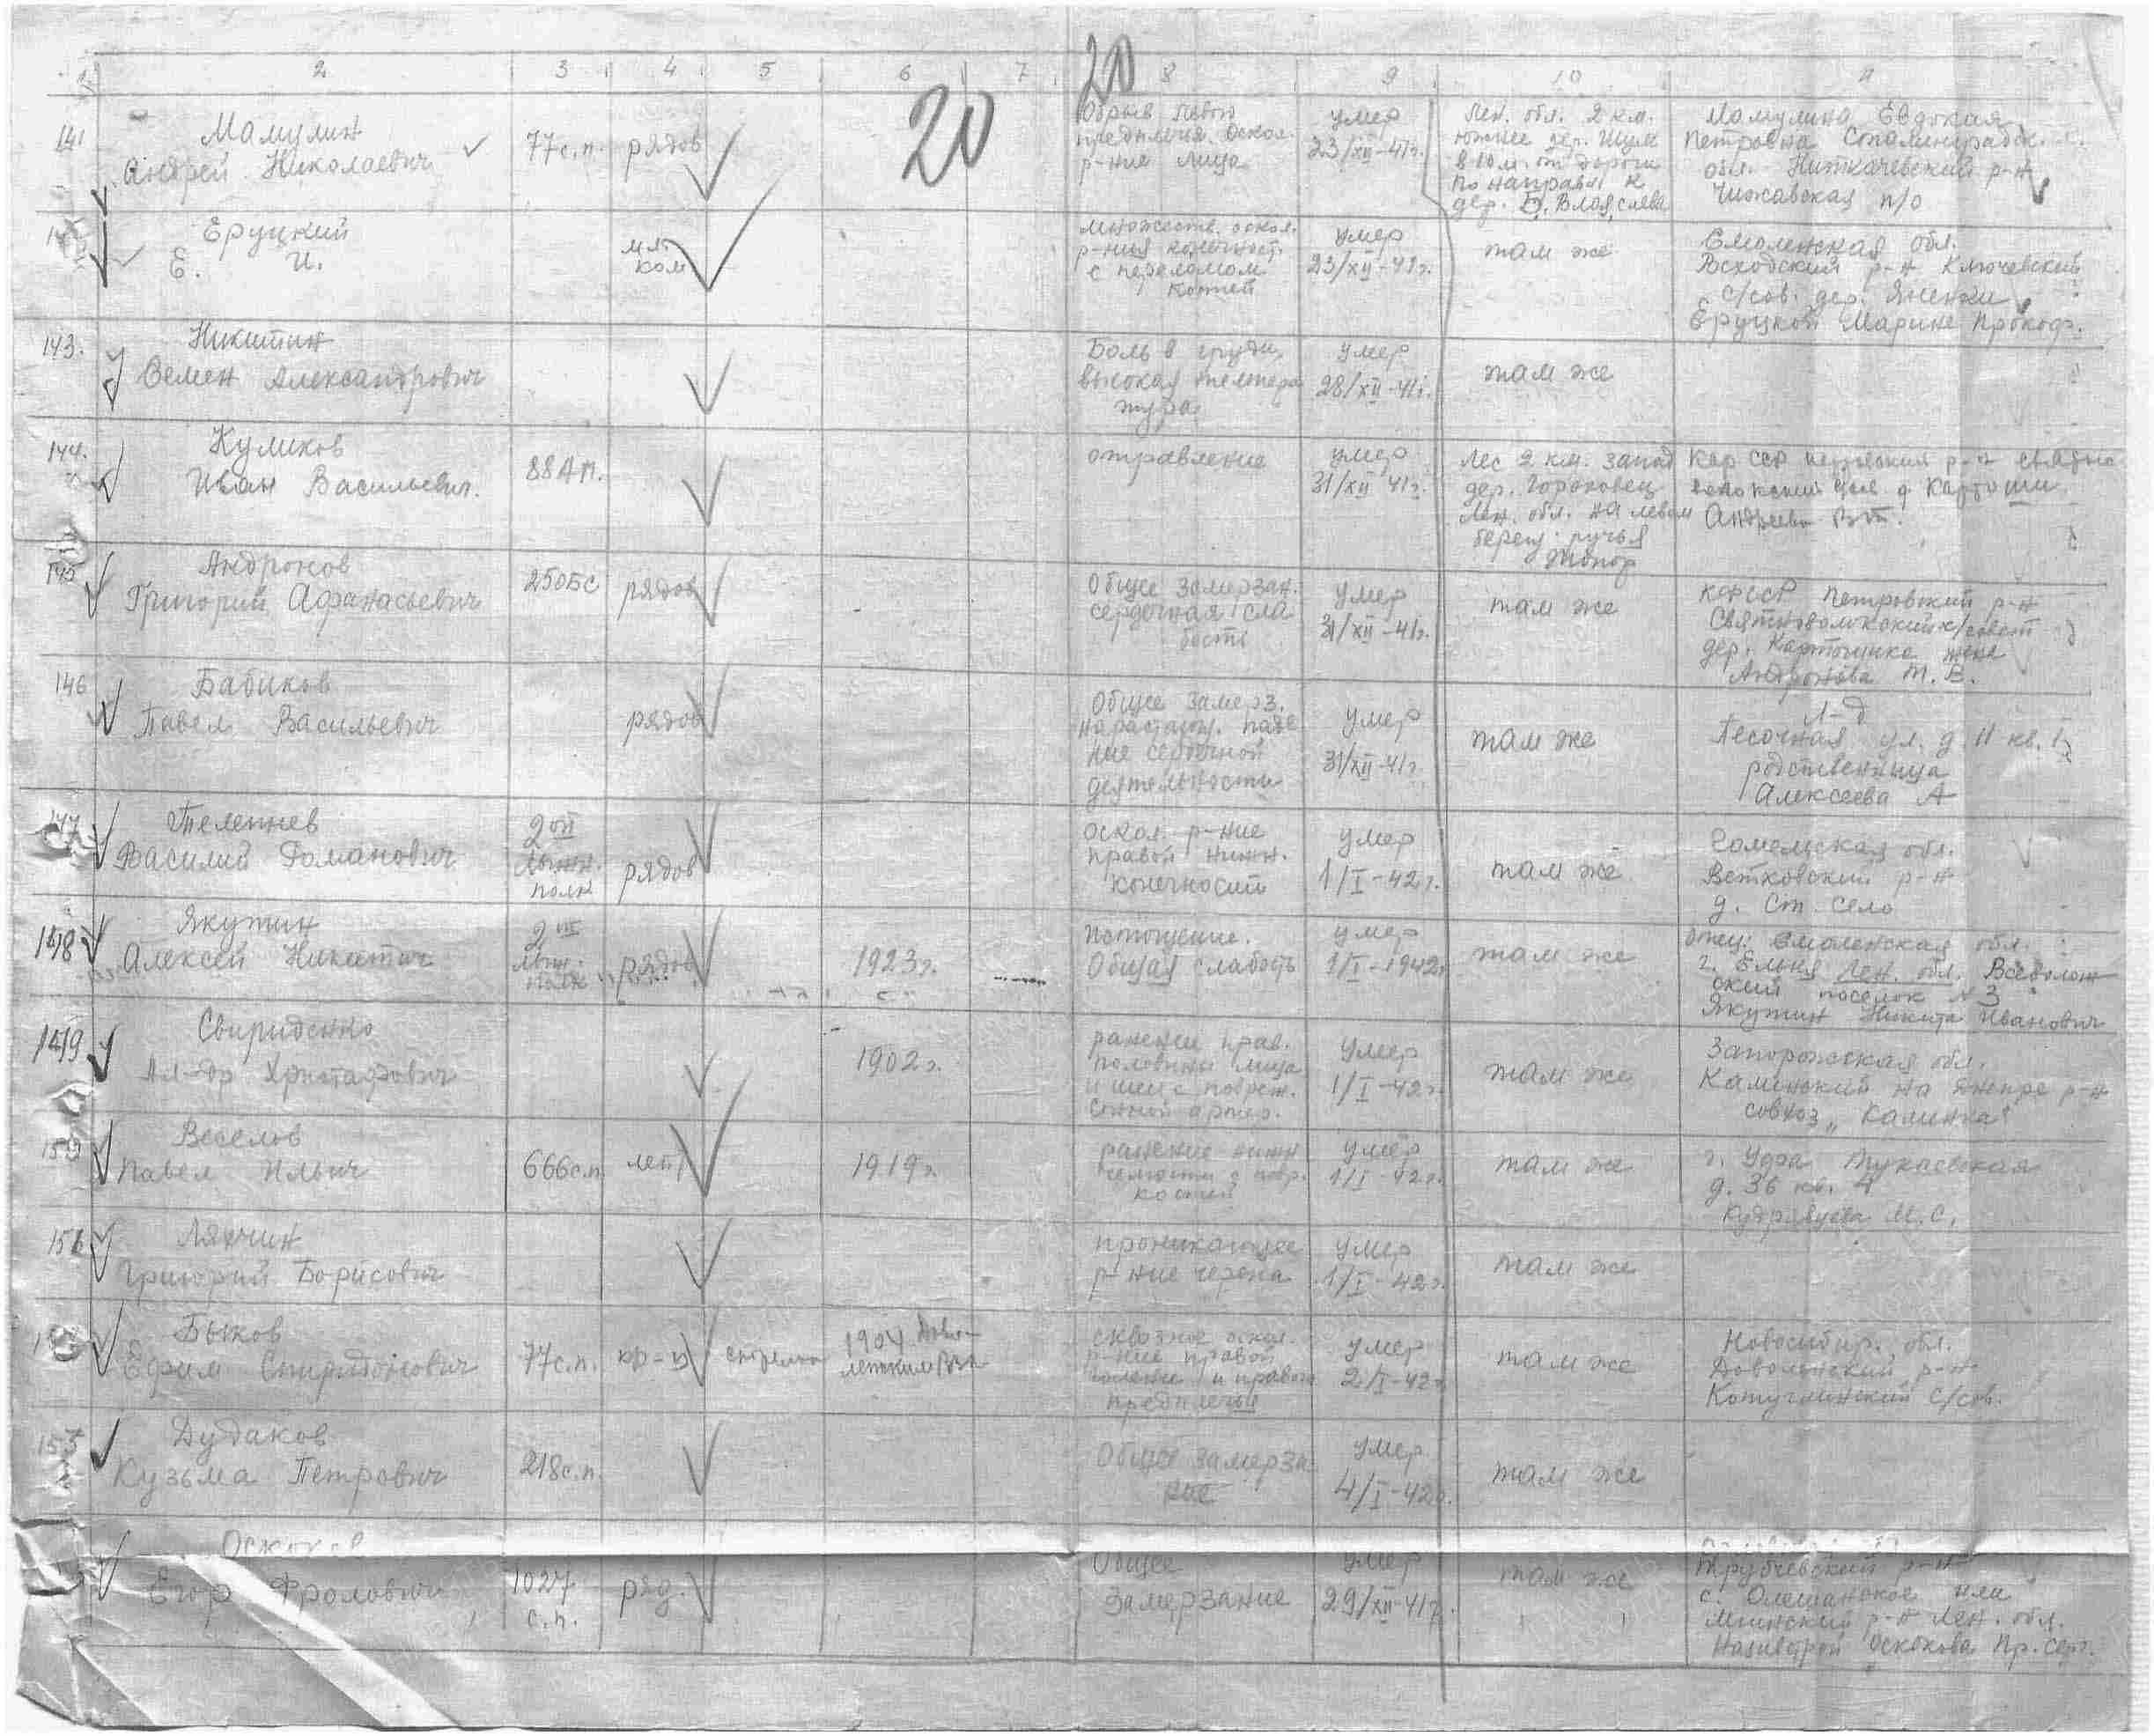 20
20
1 2 3 4 5 6 7 8 9 10 11
141
Мамулин
Андрей Николаевич
77с.п.
рядов
Обрыв левого
предплечия. Оскол.
р-ние лица
умер
23/XII-41г.
Лен. обл. 2 км.
южнее дер. Шум
в 10 м. от дороги
по направл к
дер.
Мамулина Евдокая
Петровна Сталинградск.
обл. р-н
п/о
Еруцкий
Е. И.
мл.
ком
множеств. оскол.
р-ния конечност.
с переломом
костей
умер
23/XII-41г.
там же
Смоленская обл.
Всходский р-н Ключевский
с/сов. дер.
Еруцкой Марине Прокоф.
143.
Никитин
Семен Александрович
Боль в груди,
высокая темпера
тура
умер
28/XII-41г.
там же
144.
Куликов
Иван Васильевич.
88АП.
отравление
умер
31/XII 41г.
Лес 2 км. запад
дер. Гороховец
Лен. обл. на левом
берегу ручья
Кар ССР р-н
145
Андронов
Григорий Афанасьевич
250БС
рядов
Общее замерзан.
сердечная сла
бость
умер
31/XII-41г.
там же
КФССР Петровский р-н
дер. жена
Андронова М. В.
146
Бабиков
Павел Васильевич
рядов
Общее замерз.
нарастающ. паде
ние сердечной
деятельности
умер
31/XII-41г.
там же
Л-д
Песочная ул. д. 11 кв.
родственница
Алексеева А
147
Телепнев
Василий Романович
2ой
лыжн.
полк
рядов
оскол. р-ние
правой нижн.
конечности
умер
1/I-42г.
там же
Гомельская обл.
Ветковский р-н
д. Ст. село
148
Якутин
Алексей Никитич
2
лыжн.
полк
рядов
1923г.
Истощение.
Общая слабость
умер
1/I-1942г
там же
отец: Смоленская обл.
г. Ельня Лен. обл. Всеволож
ский поселок N 3
Якутин Никита Иванович
149
Свириденко
Ал-др Христафович
1902г.
ранение прав.
половины лица
и шеи с повреж.
сонной артер.
умер
1/I-42г.
там же
Запорожская обл.
Каменский на Днепре р-н
совхоз „Калинка"
150
Веселов
Павел Ильич
666с.п.
лейт
1919г.
ранение нижн
костей
умер
1/I-42г.
там же
г. Уфа Тукаевская
д. 36 кв. 4
М.С.
151
Ляхчин
Григорий Борисович
проникающее
р-ние черепа
умер
1/I-42г.
там же
Быков
Ефим Спиридонович
77с.п.
кр-ц
стрелок
1904
сквозное оскол.
р-ние правой
голени и правого
предплечья
умер
2/I-42г
там же
Новосибир. обл.
Доволенский р-н
с/сов.
153
Дудаков
Кузьма Петрович
218с.п.
Общее замерза
ние
умер
4/I-42г.
там же
Егор Фролович
1027
с.п.
ряд.
Общее
замерзание
умер
29/XII-41г.
там же
Трубчевский р-н
с. или
р-н Лен. обл.
Оскокова Пр. Серг.